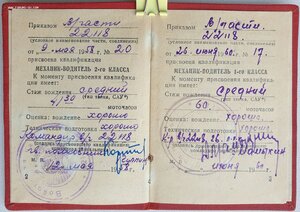 Приказом в/части
22118
(условное наименование части, соединения)
от 9 мая 1958 г. № 20
присвоена квалификация
МЕХАНИК-ВОДИТЕЛЬ 2-го КЛАССА
К моменту присвоения квалификации имеет:
Стаж вождения средний
(тип танка, САУ)
4130
моточасов
Оценка: вождения хорошо
Техническая подготовка хорошо
22118
гв. полковник
12 мая
Приказом в/части
22118
(условное наименование части, соединения)
от 28 июня 60 г. № 17.
присвоена квалификация
МЕХАНИК-ВОДИТЕЛЬ 1-го КЛАССА
К моменту присвоения квалификации имеет:
Стаж вождения средний
(тип танка, САУ)
60
моточасов
Оценка: вождения
хорошо.
Техническая подготовка
хорошо.
июня